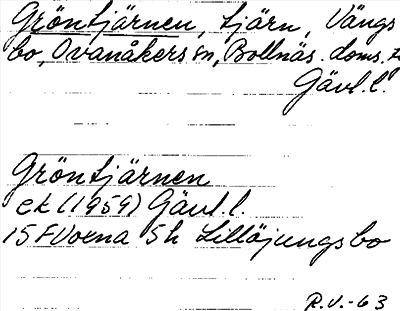 Gröntjärnen, tjärn, Vängs
bo, Ovanåkers sn, Bollnäs. doms.
Gävl. l.
Gröntjärnen
ek (1959) Gävl. l.
15 F Voxna 5h Lillöjungsbo
R.V.-63